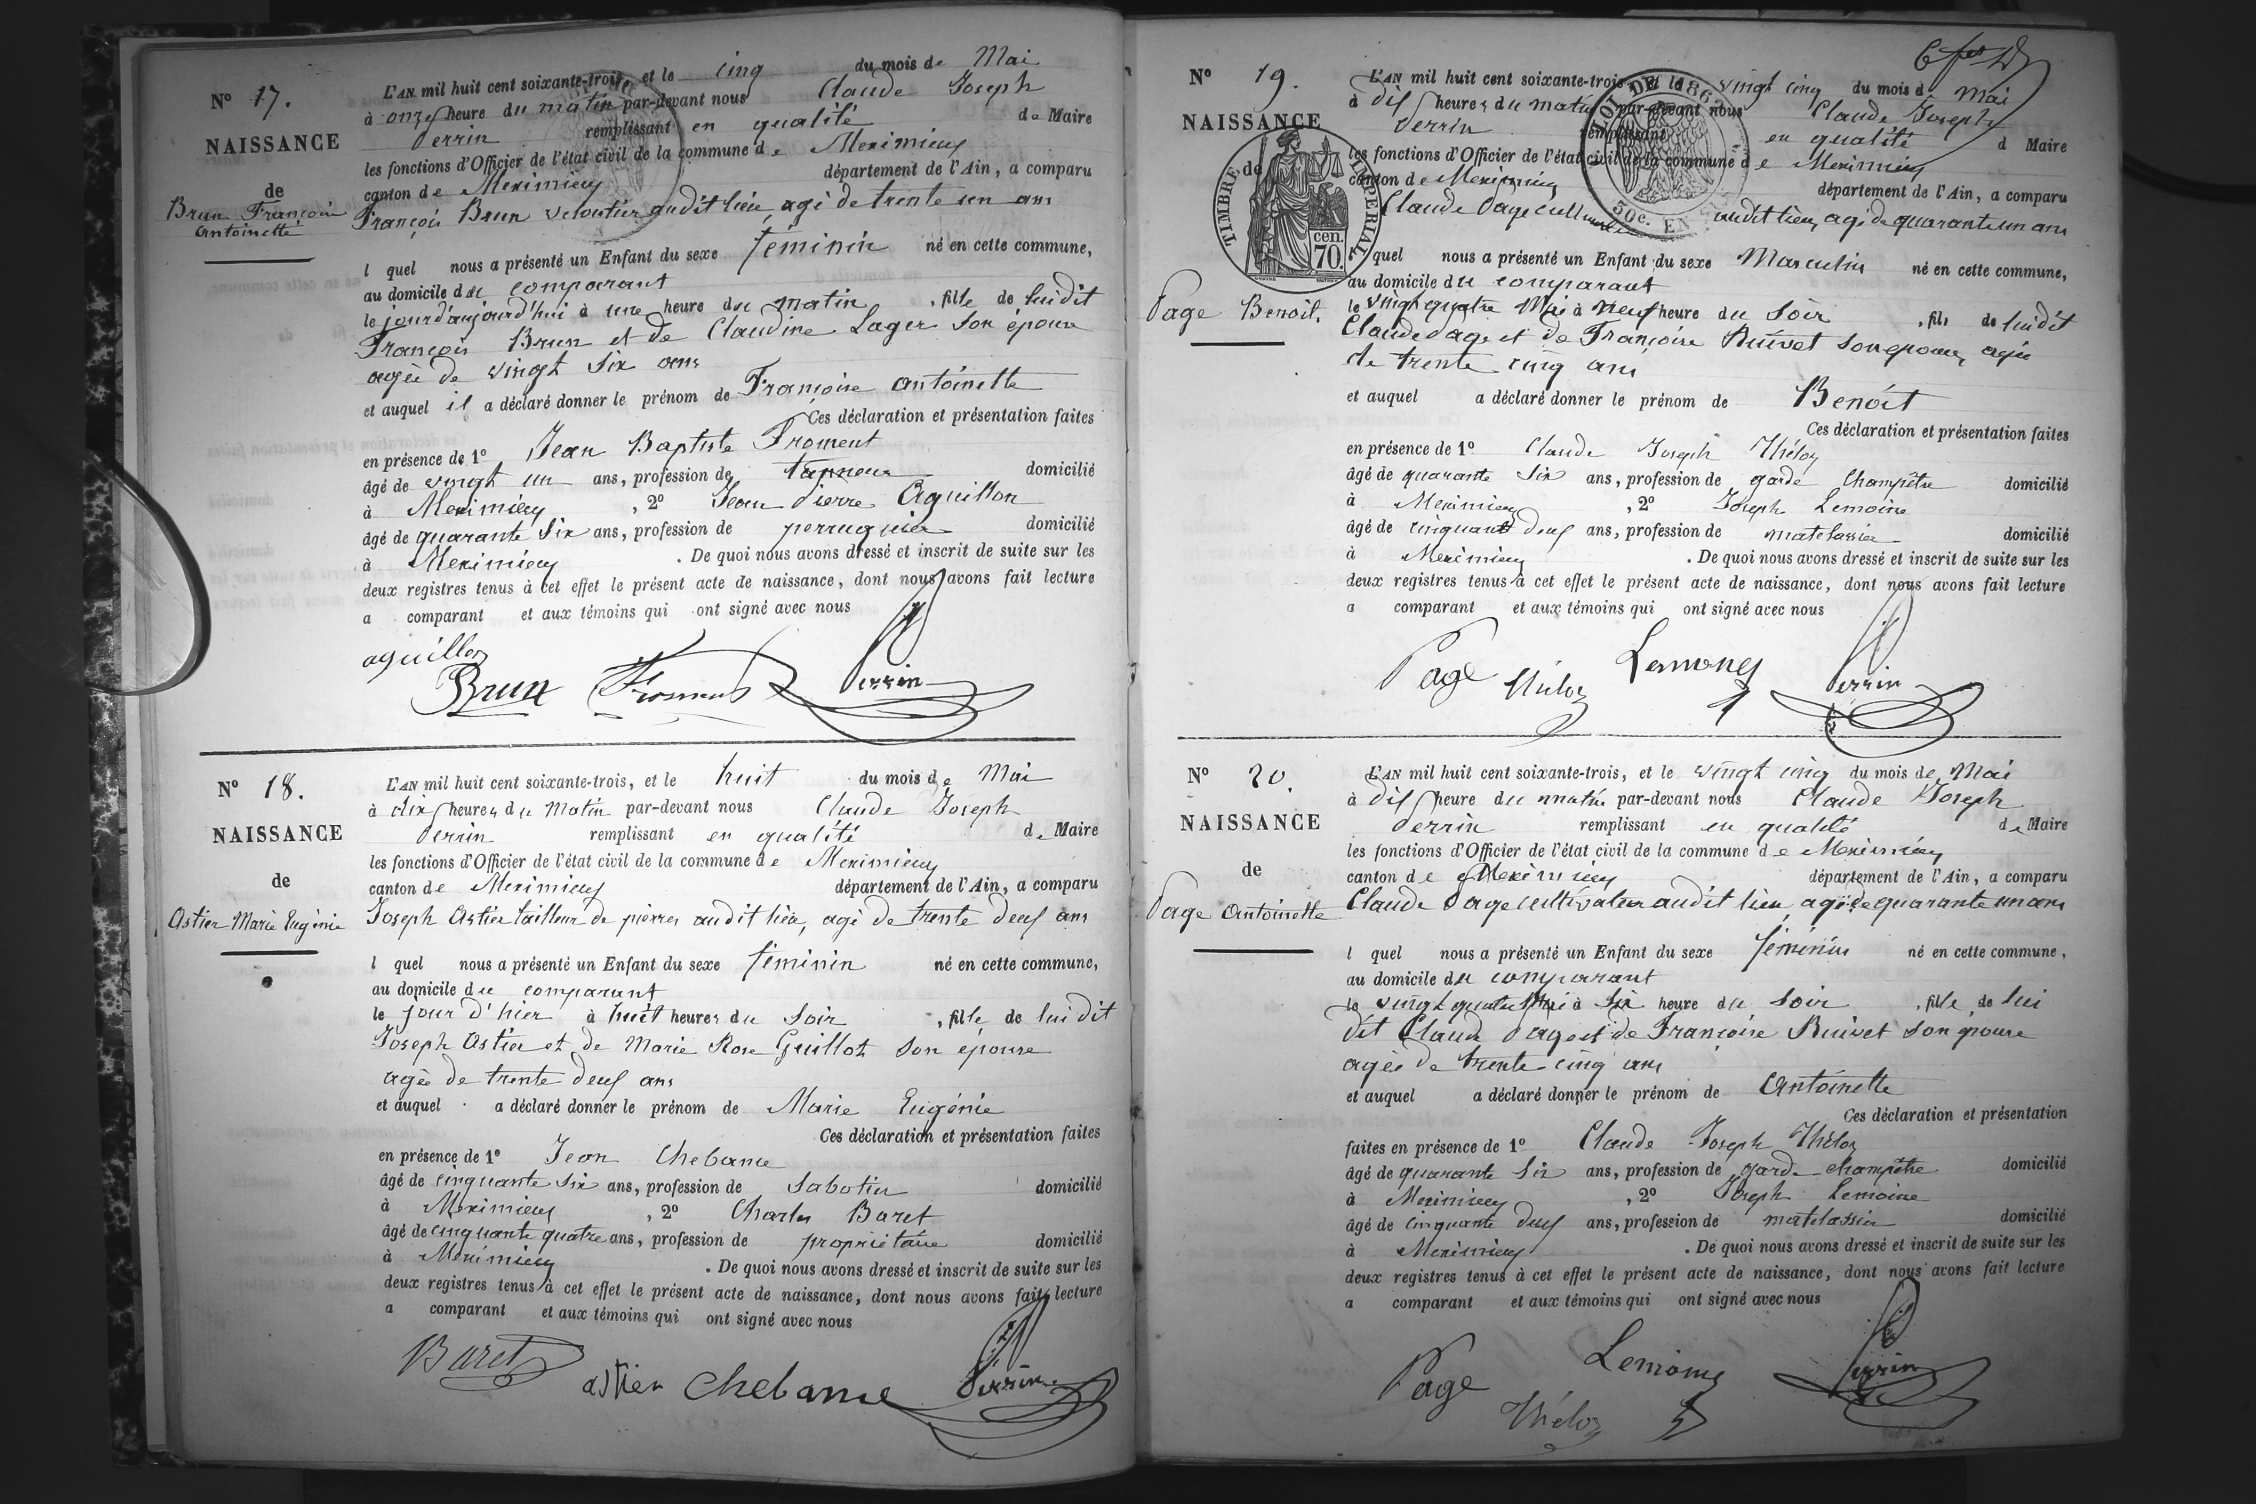 N° 17.
NAISSANCE
de
Brun Françoise
Antoinette
L'AN mil huit cent soixante-trois, et le cinq du mois de Mai
à onze heure du matin par-devant nous Claude Joseph
Perrin remplissant en qualité de Maire
les fonctions d'Officier de l'état civil de la commune de Meximieux
canton de Meximieux département de l'Ain, a comparu
François Brun veloutier audit lieu, agé de trente un ans
l quel nous a présenté un Enfant du sexe féminin né en cette commune,
au domicile du comparant
le jourd'aujourd'hui à une heure du matin, fille de lui dit
François Brun et de Claudine Lager son épouse
agée de vingt six ans
et auquel il a déclaré donner le prénom de Françoise Antoinette
Ces déclaration et présentation faites
en présence de 1° Jean Baptiste Froment
âgé de vingt un ans, profession de tanneur domicilié
à Meximieux, 2° Jean Pierre Aguillon
âgé de quarante six ans, profession de perruquier domicilié
à Meximieux. De quoi nous avons dressé et inscrit de suite sur les
deux registres tenus à cet effet le présent acte de naissance, dont nous avons fait lecture
a comparant et aux témoins qui ont signé avec nous
aguillon
Brun Froment Perrin
N° 18.
NAISSANCE
de
Astier Marie Eugénie
L'AN mil huit cent soixante-trois, et le huit du mois de Mai
à dix heures du matin par-devant nous Claude Joseph
Perrin remplissant en qualité de Maire
les fonctions d'Officier de l'état civil de la commune de Meximieux
canton de Meximieux département de l'Ain, a comparu
Joseph Astier tailleur de pierres audit lieu, agé de trente deux ans
l quel nous a présenté un Enfant du sexe féminin né en cette commune,
au domicile du comparant
le jour d'hier à huit heures du soir, fille de lui dit
Joseph Astier et de Marie Rose Guillot son épouse
agée de trente deux ans
et auquel a déclaré donner le prénom de Marie Eugénie
Ces déclaration et présentation faites
en présence de 1° Jean Chebance
âgé de cinquante six ans, profession de Sabotier domicilié
à Meximieux, 2° Charles Baret
âgé de cinquante quatre ans, profession de propriétaire domicilié
à Meximieux. De quoi nous avons dressé et inscrit de suite sur les
deux registres tenus à cet effet le présent acte de naissance, dont nous avons fait lecture
a comparant et aux témoins qui ont signé avec nous
Baret
astier Chebance Perrin
N° 19.
NAISSANCE
de
Page Benoit.
TIMBRE IMPERIAL
cen.
70.
LOI DE 1862
50c. EN
L'AN mil huit cent soixante-trois et le vingt cinq du mois de mai
à dix heures du matin par-devant nous Claude Joseph
Perrin remplissant en qualité d Maire
les fonctions d'Officier de l'état civil de la commune de Meximieux
canton de Meximieux département de l'Ain, a comparu
Claude Page cultivateur audit lieu, agé de quarante un ans
l quel nous a présenté un Enfant du sexe Masculin né en cette commune,
au domicile du comparant
le vingt quatre Mai à neuf heure du soir, fils de lui dit
Claude Page et de Françoise Ruivet son epouse, agée
de trente cinq ans
et auquel a déclaré donner le prénom de Benoît
Ces déclaration et présentation faites
en présence de 1° Claude Joseph Théloz
âgé de quarante six ans, profession de garde Champêtre domicilié
à Meximieux, 2° Joseph Lemoine
âgé de cinquante deux ans, profession de matelassier domicilié
à Meximieux. De quoi nous avons dressé et inscrit de suite sur les
deux registres tenus à cet effet le présent acte de naissance, dont nous avons fait lecture
a comparant et aux témoins qui ont signé avec nous
Page Théloz Perrin
N° 20.
NAISSANCE
de
Page Antoinette
L'AN mil huit cent soixante-trois, et le vingt cinq du mois de Mai
à dix heure du matin par-devant nous Claude Joseph
Perrin remplissant en qualité de Maire
les fonctions d'Officier de l'état civil de la commune de Meximieux
canton de Meximieux département de l'Ain, a comparu
Claude Page cultivateur audit lieu, agé de quarante un ans
l quel nous a présenté un Enfant du sexe féminin né en cette commune,
au domicile du comparant
le vingt quatre Mai à six heure du soir, fille de lui
dit Claude Page et de Françoise Ruivet son epouse
agée de trente cinq ans
et auquel a déclaré donner le prénom de Antoinette
Ces déclaration et présentation
faites en présence de 1° Claude Joseph Théloz
âgé de quarante six ans, profession de garde champêtre domicilié
à Meximieux, 2° Joseph Lemoine
âgé de cinquante deux ans, profession de matelassier domicilié
à Meximieux. De quoi nous avons dressé et inscrit de suite sur les
deux registres tenus à cet effet le présent acte de naissance, dont nous avons fait lecture
a comparant et aux témoins qui ont signé avec nous
Page Perrin
Théloz